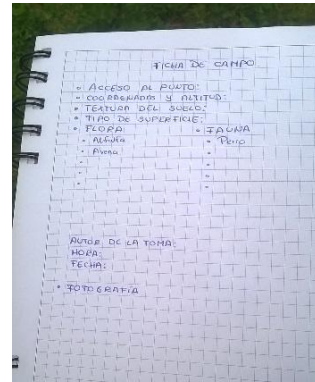 FICHA DE CAMPO
• ACCESO AL PUNTO:
• COORDENADAS Y ALTITUD:
• TEXTURA DEL SUELO:
• TIPO DE SUPERFICIE:
• FLORA: • FAUNA
• Avena • Perro
AUTOR DE LA TOMA:
HORA:
FECHA:
• FOTOGRAFÍA